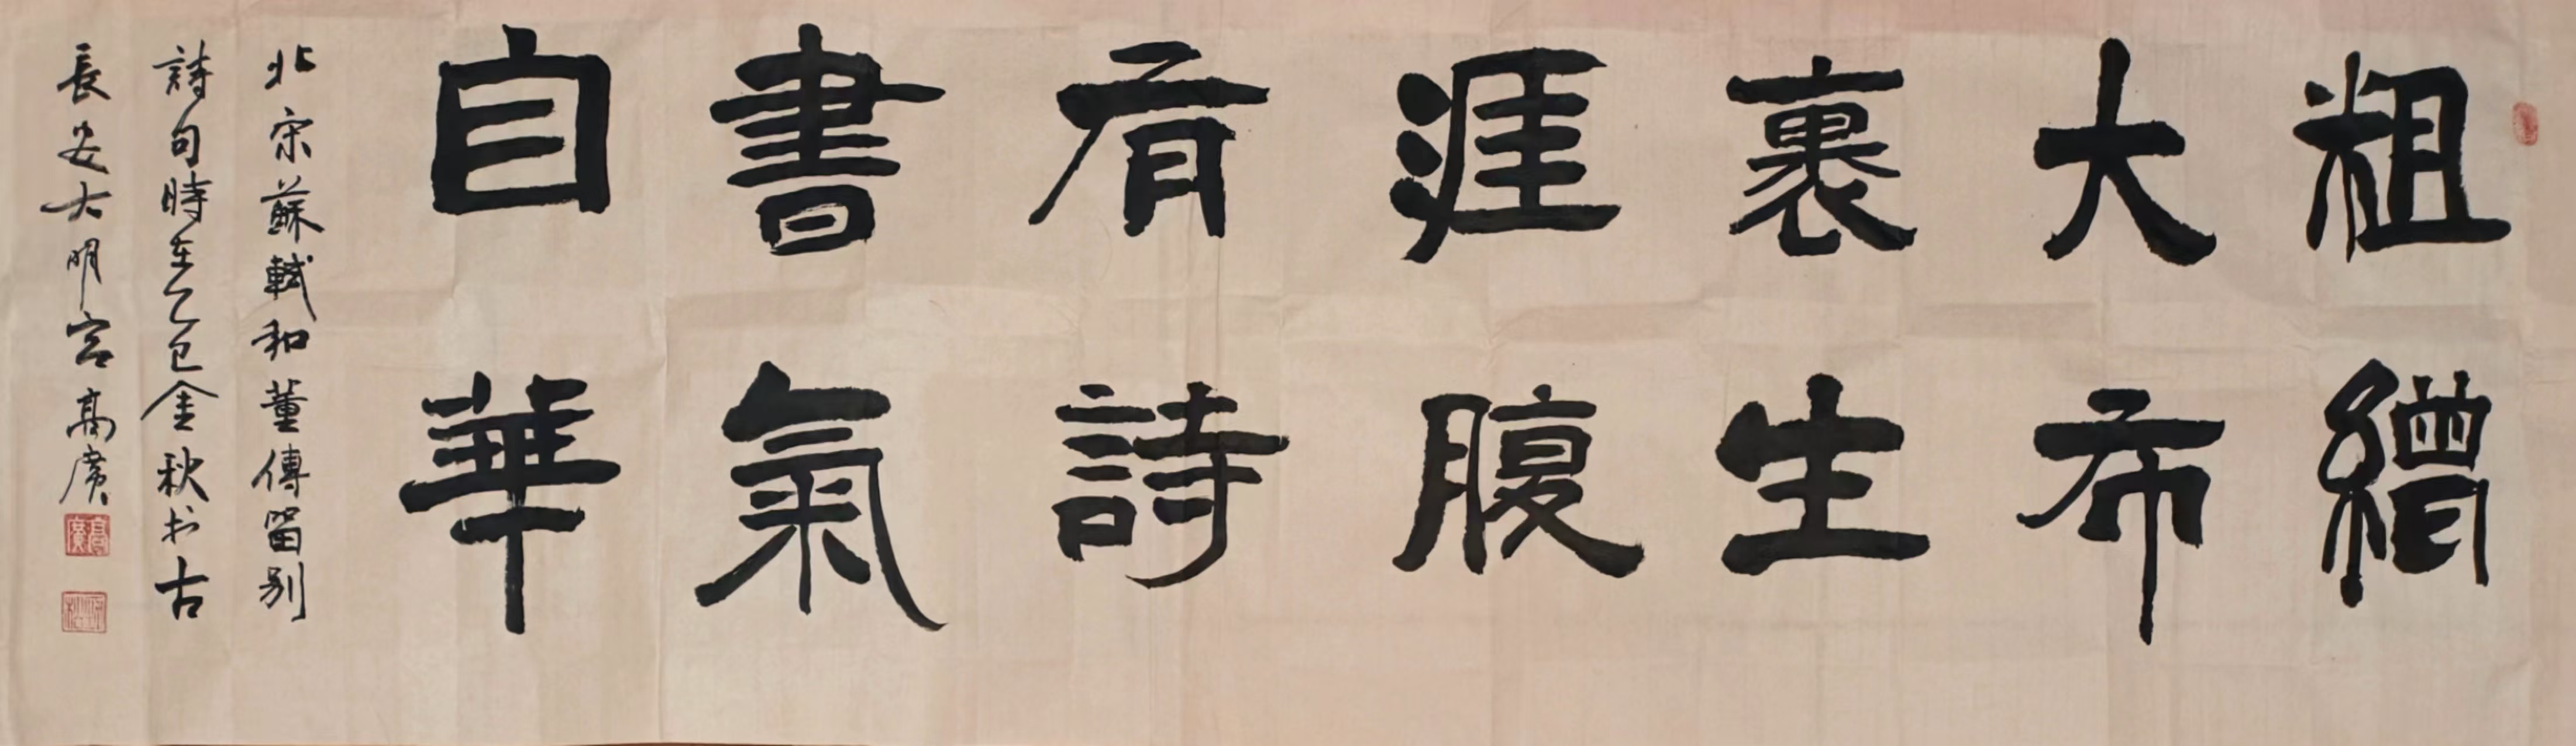 粗繒
大布
裹生
涯腹
有詩
書氣
自華
北宋蘇軾和董傳留別
詩句時在乙巳金秋於古
長安大明宮高廣
高廣